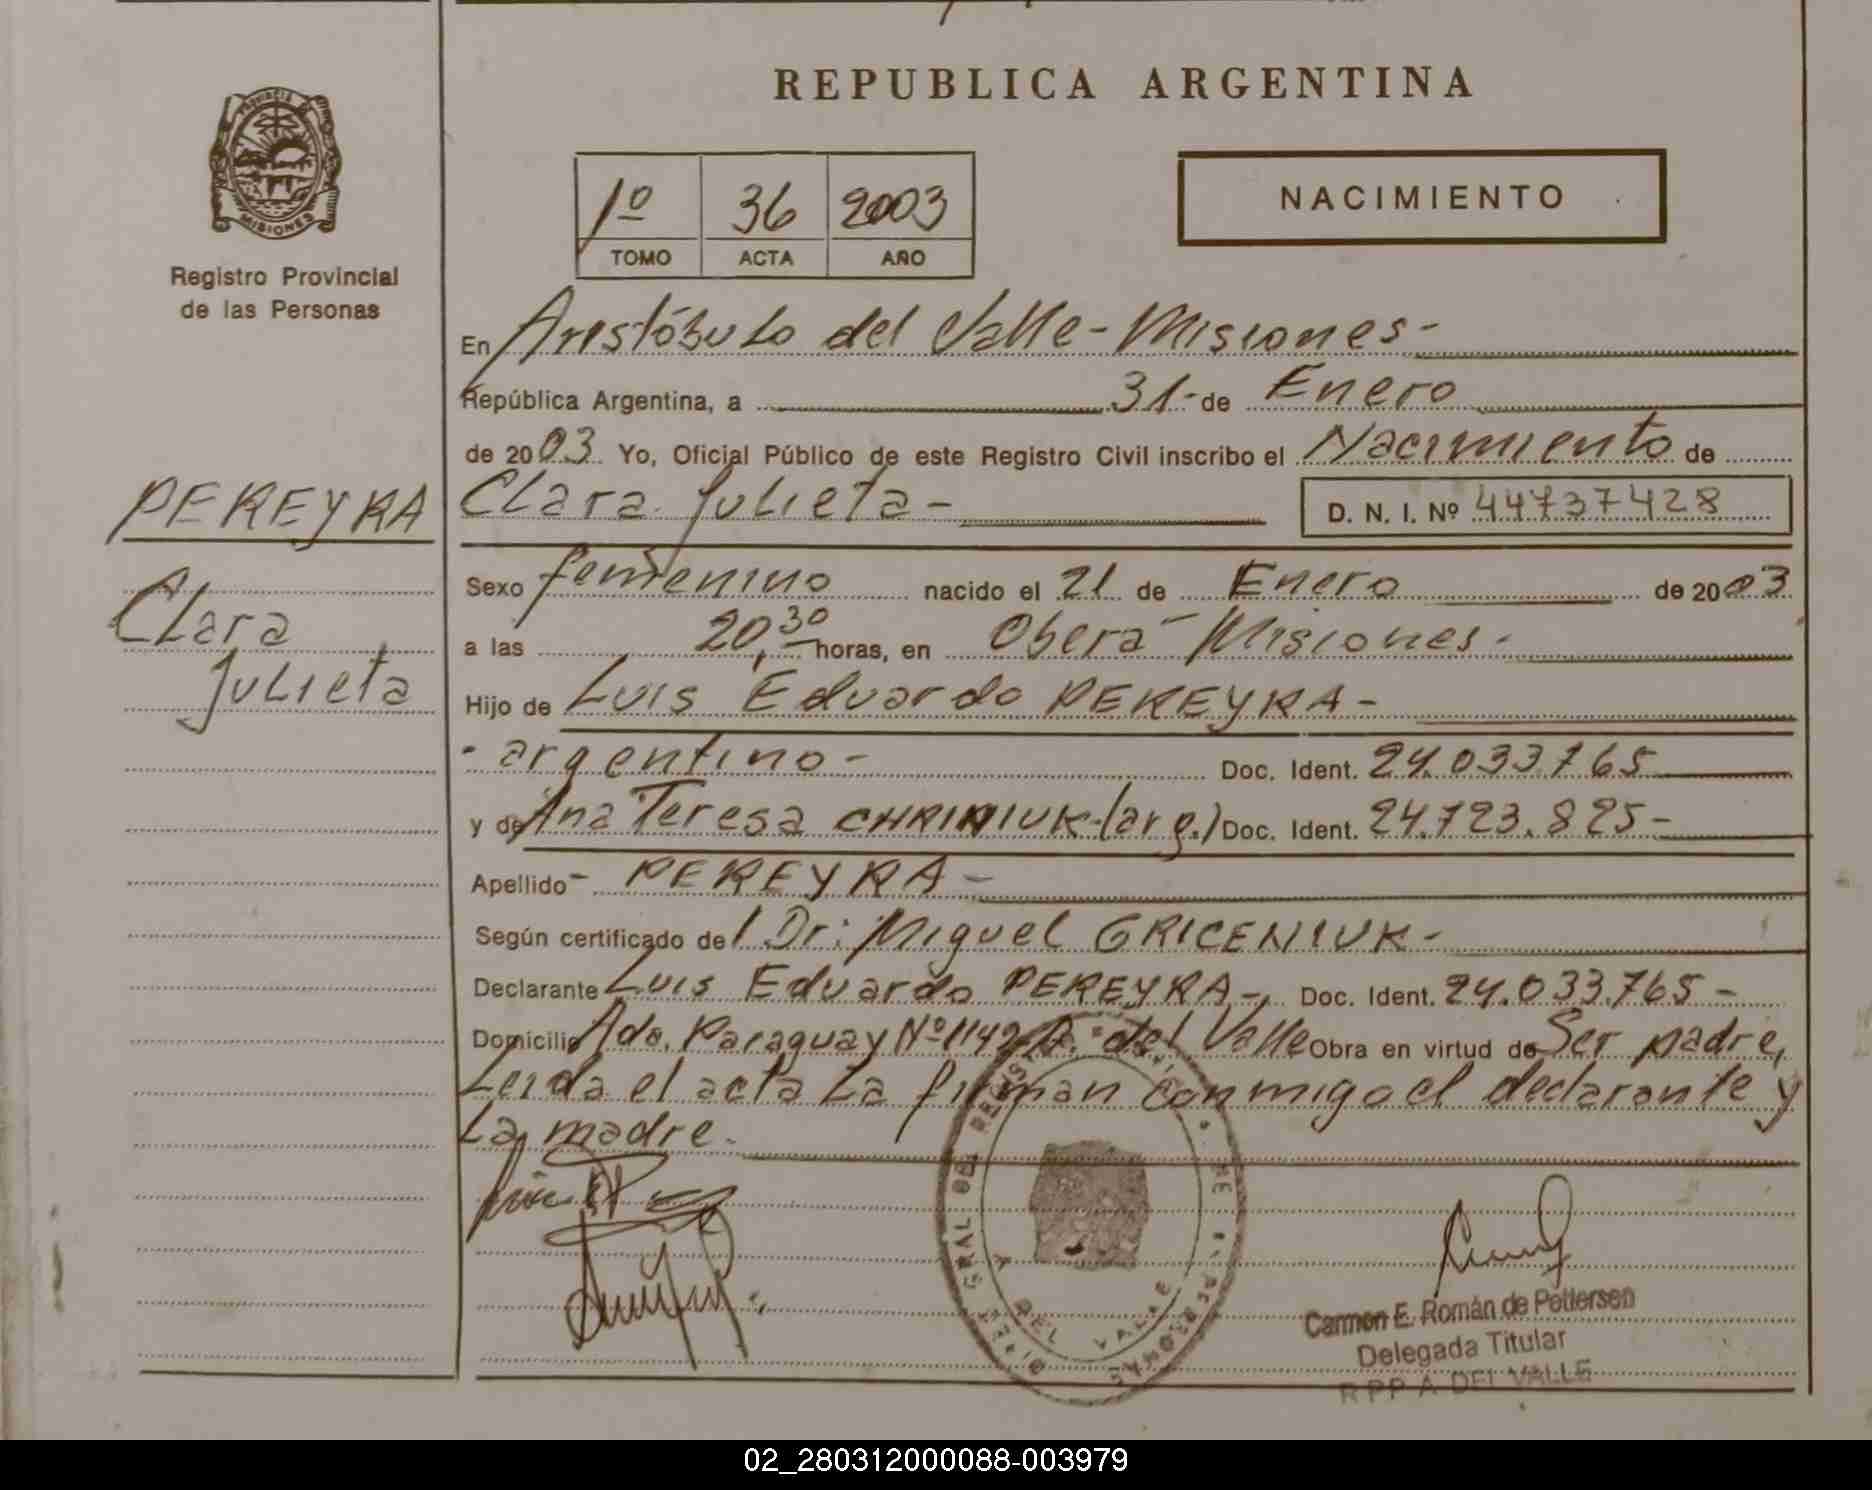 REPUBLICA ARGENTINA
PROVINCIA DE
MISIONES
Registro Provincial
de las Personas
1º 36 2003
TOMO ACTA AÑO
NACIMIENTO
En Aristóbulo del Valle - Misiones -
República Argentina, a 31 - de Enero
de 2003 Yo, Oficial Público de este Registro Civil inscribo el Nacimiento de
PEREYRA
Clara Julieta
Clara Julieta - D. N. I. Nº 44737428
Sexo femenino nacido el 21 de Enero de 2003
a las 20,30 horas, en Oberá - Misiones -
Hijo de Luis Eduardo PEREYRA -
- argentino - Doc. Ident. 24.033.765
y de Ana Teresa (arg.) Doc. Ident. 24.723.825 -
Apellido - PEREYRA -
Según certificado del Dr: Miguel GRICENIUK -
Declarante Luis Eduardo PEREYRA -, Doc. Ident. 24.033.765 -
Domicilio Avda. Paraguay Nº 1142 A. del Valle Obra en virtud de Ser padre,
Leída el acta la firman conmigo el declarante y
La madre.
Carmen E. Román de Pettersen
Delegada Titular
R P P A DEL VALLE
02_280312000088-003979